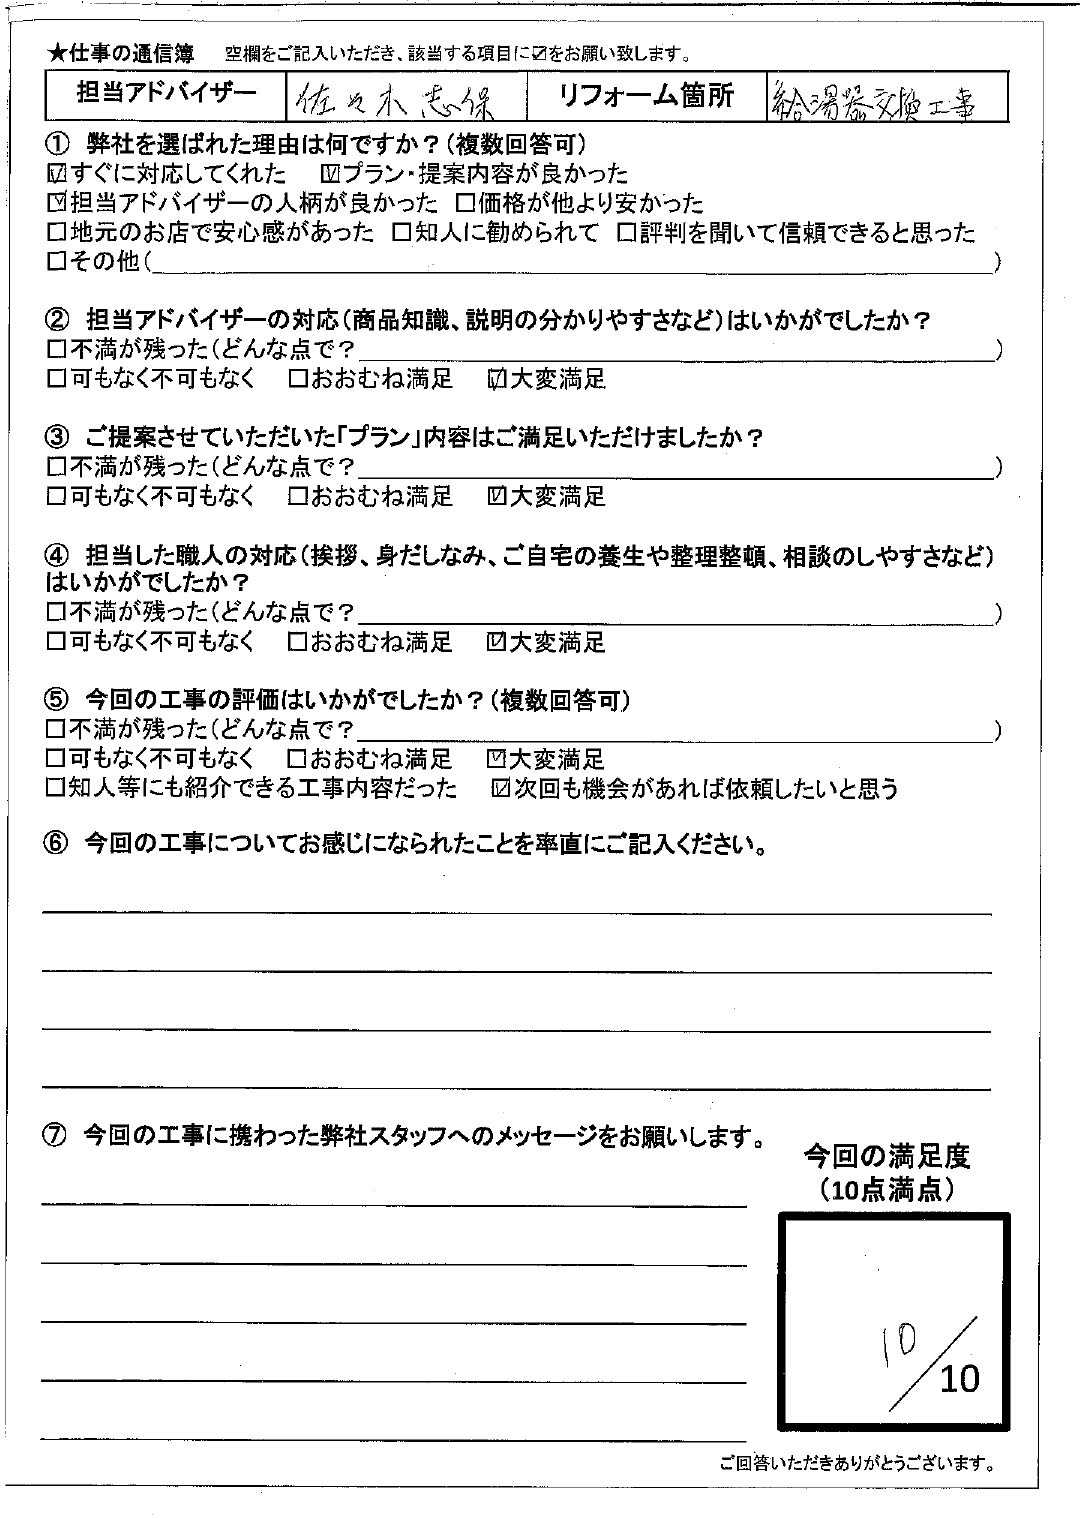 ★仕事の通信簿 空欄をご記入いただき、該当する項目に☑をお願い致します。
担当アドバイザー 佐々木 志保 リフォーム箇所 給湯器交換工事
① 弊社を選ばれた理由は何ですか？(複数回答可)
☑すぐに対応してくれた ☑プラン・提案内容が良かった
☑担当アドバイザーの人柄が良かった □価格が他より安かった
□地元のお店で安心感があった □知人に勧められて □評判を聞いて信頼できると思った
□その他( )
② 担当アドバイザーの対応(商品知識、説明の分かりやすさなど)はいかがでしたか？
□不満が残った(どんな点で？ )
□可もなく不可もなく □おおむね満足 ☑大変満足
③ ご提案させていただいた「プラン」内容はご満足いただけましたか？
□不満が残った(どんな点で？ )
□可もなく不可もなく □おおむね満足 ☑大変満足
④ 担当した職人の対応(挨拶、身だしなみ、ご自宅の養生や整理整頓、相談のしやすさなど)
はいかがでしたか？
□不満が残った(どんな点で？ )
□可もなく不可もなく □おおむね満足 ☑大変満足
⑤ 今回の工事の評価はいかがでしたか？(複数回答可)
□不満が残った(どんな点で？ )
□可もなく不可もなく □おおむね満足 ☑大変満足
□知人等にも紹介できる工事内容だった ☑次回も機会があれば依頼したいと思う
⑥ 今回の工事についてお感じになられたことを率直にご記入ください。
⑦ 今回の工事に携わった弊社スタッフへのメッセージをお願いします。
今回の満足度
(10点満点)
10/10
ご回答いただきありがとうございます。